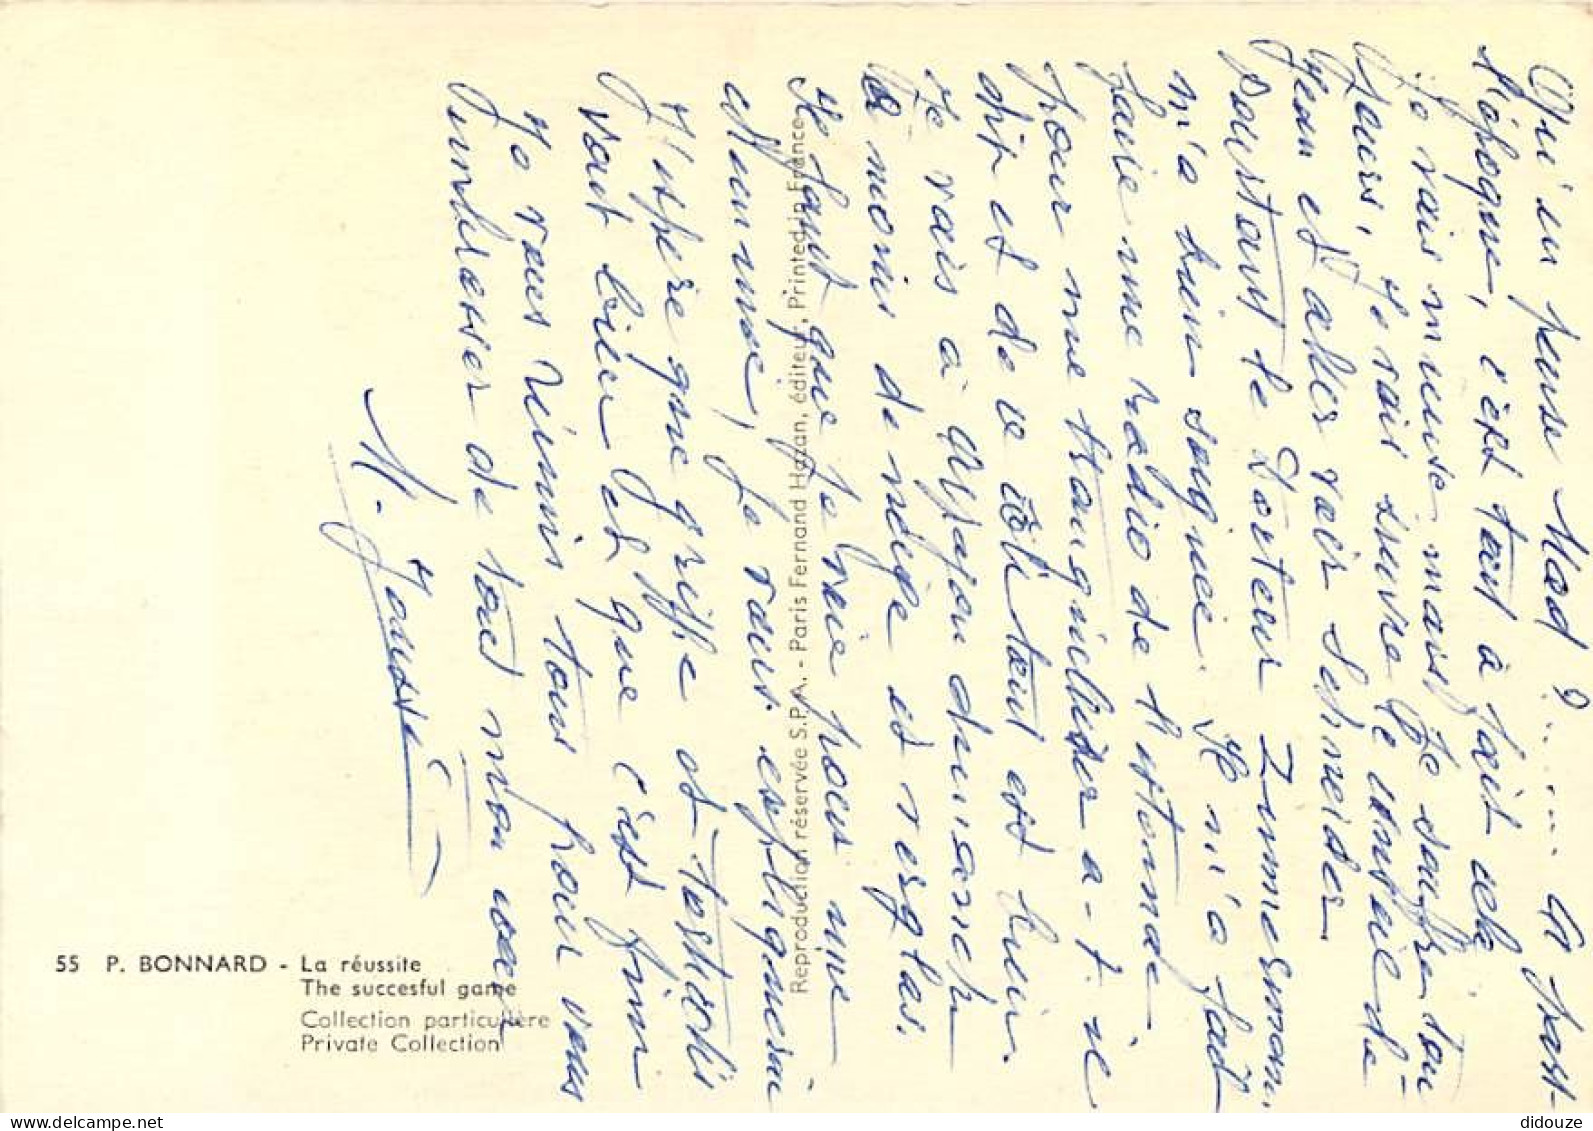 Qu'en pense Mad ? ...... la post-
l'époque, c'est tout à fait cela.
Je vais mieux mais je souffre tou-
jours. Je vais suivre le conseil de
Jean et aller voir Schneider
pourtant le Docteur Zimmermann.
m'a bien soignée. Il m'a fait
faire une radio de l'estomac
pour me tranquilliser a-t-il
dit et de ce côté tout est bien.
Je vais à Mijou dimanche
à moins de neige et verglas.
Il faut que je voie pour une
chaumière, je vous expliquerai
J'espère que griffe et torticolis
vont bien et que c'est fini
Je vous réunis tous pour vous
embrasser de tout mon cœur
M.
55 P. BONNARD - La réussite
The succesful game
Collection particulière
Private Collection
Reproduction réservée S.P.A. - Paris Fernand Hazan, éditeur, Printed in France
delcampe.net
didouze